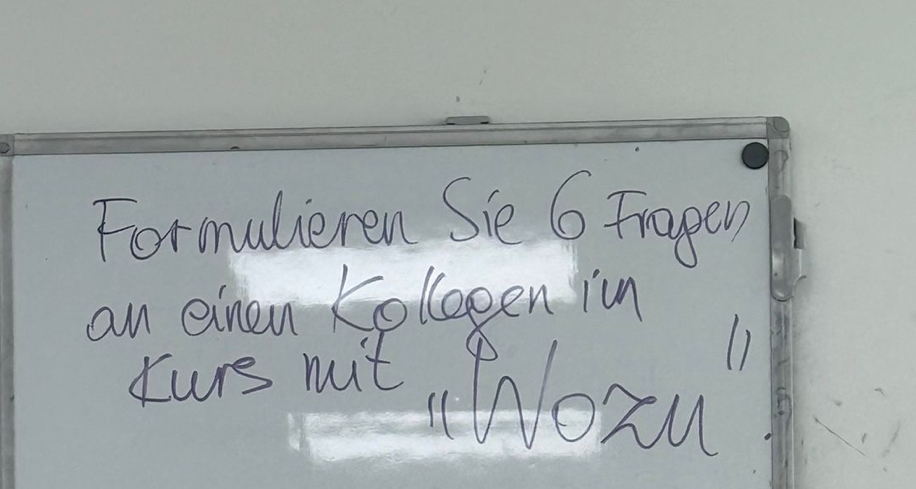 Formulieren Sie 6 Fragen
an einen Kollegen im
Kurs mit „Wozu".